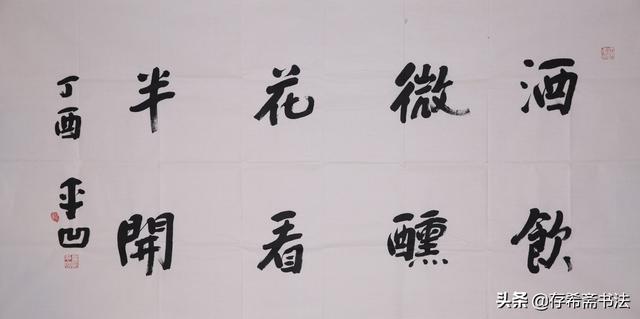 酒飲
微醺
花看
半開
丁酉 平凹
头条 @存希斋书法